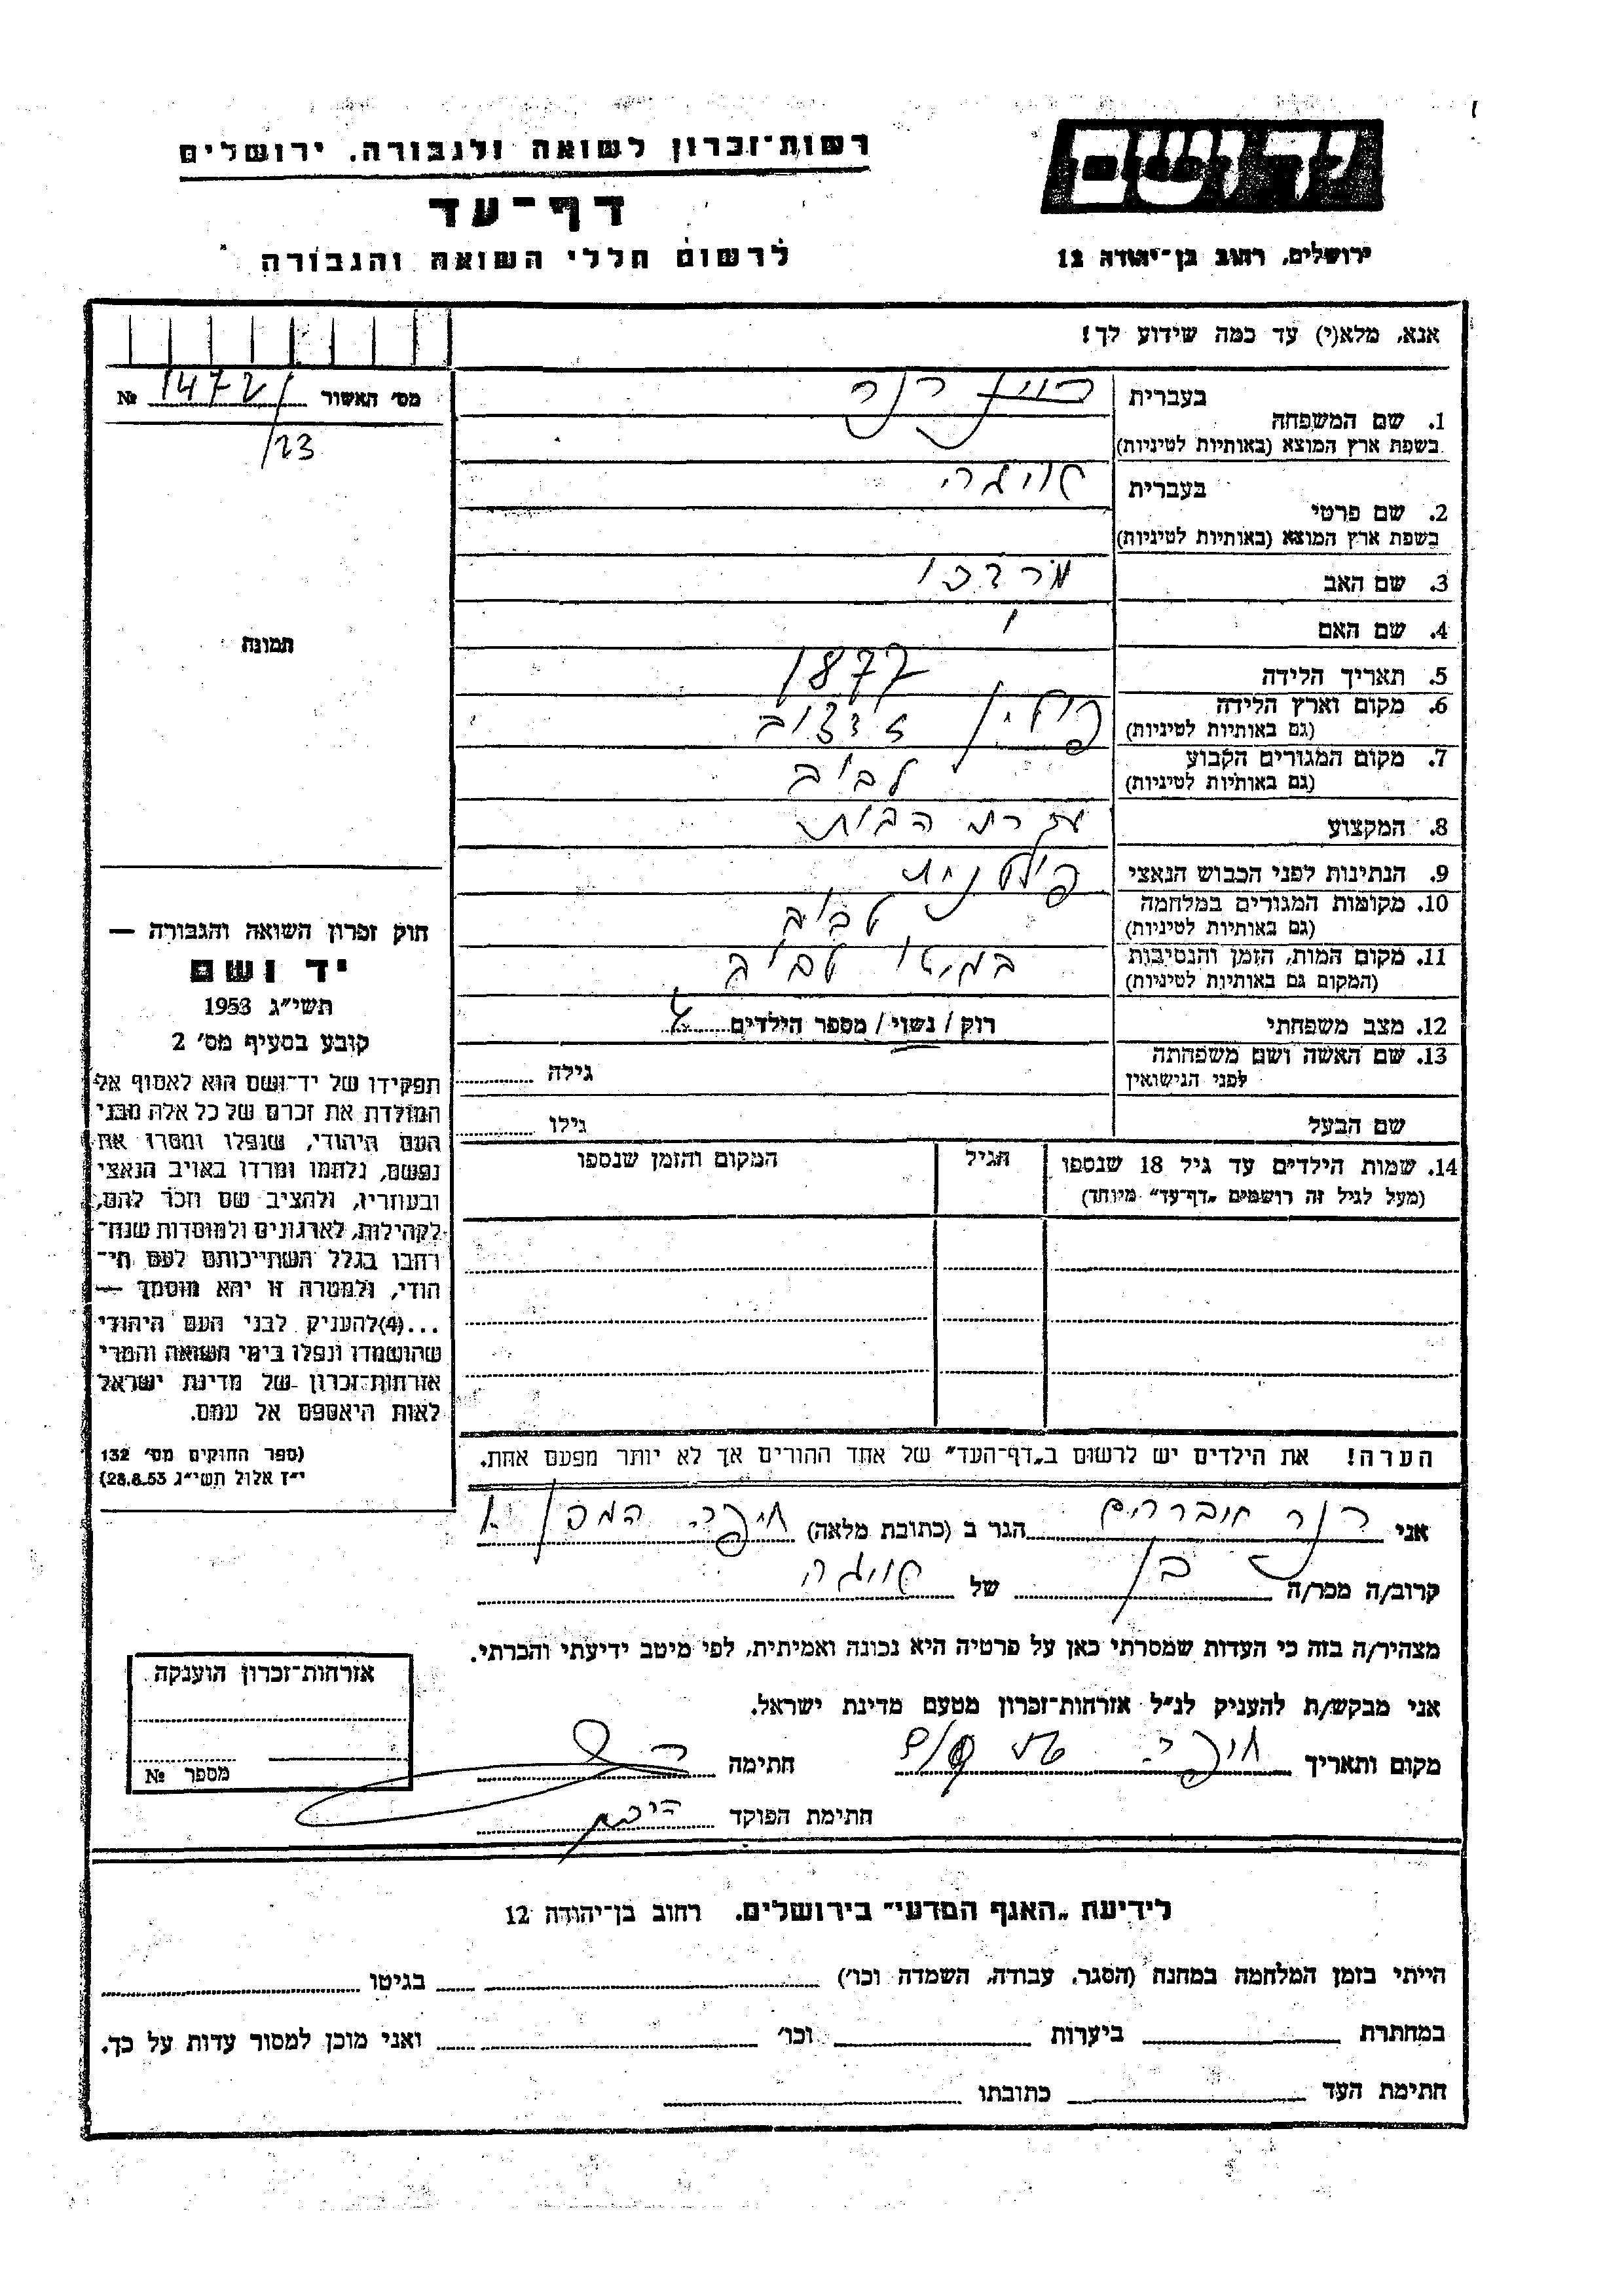 יד ושם
ירושלים, רחוב בן־יהודה 12
רשות־זכרון לשואה ולגבורה, ירושלים
דף־עד
לרשום חללי השואה והגבורה
אנא, מלא(י) עד כמה שידוע לך!
מס׳ האשור 1472/ №
/23
תמונה
1. שם המשפחה
בעברית
בשפת ארץ המוצא (באותיות לטיניות)
2. שם פרטי
בעברית
בשפת ארץ המוצא (באותיות לטיניות)
3. שם האב מרדכי
4. שם האם
5. תאריך הלידה 1877
6. מקום וארץ הלידה פולין
(גם באותיות לטיניות)
7. מקום המגורים הקבוע לבוב
(גם באותיות לטיניות)
8. המקצוע עקרת הבית
9. הנתינות לפני הכבוש הנאצי פולנית
10. מקומות המגורים במלחמה לבוב
(גם באותיות לטיניות)
11. מקום המות, הזמן והנסיבות בגיטו לבוב
(המקום גם באותיות לטיניות)
12. מצב משפחתי רוק / נשוי / מספר הילדים
13. שם האשה ושם משפחתה
לפני הנישואין
גילה
שם הבעל גילו
14. שמות הילדים עד גיל 18 שנספו
(מעל לגיל זה רושמים „דף־עד״ מיוחד)
הגיל
המקום והזמן שנספו
חוק זכרון השואה והגבורה —
יד ושם
תשי״ג 1953
קובע בסעיף מס׳ 2
תפקידו של יד־ושם הוא לאסוף אל
המולדת את זכרם של כל אלה מבני
העם היהודי, שנפלו ומסרו את
נפשם, נלחמו ומרדו באויב הנאצי
ובעוזריו, ולהציב שם וזכר להם,
לקהילות, לארגונים ולמוסדות שנח־
רחבו בגלל השתייכותם לעם הי־
הודי, ולמטרה זו יהא מוסמך —
...(4)להעניק לבני העם היהודי
שהושמדו ונפלו בימי השואה והמרי
אזרחות־זכרון של מדינת ישראל
לאות היאספם אל עמם.
(ספר החוקים מס׳ 132
י״ז אלול תשי״ג 28.8.53)
הערה! את הילדים יש לרשום ב„דף־העד״ של אחד ההורים אך לא יותר מפעם אחת.
אני הגר ב (כתובת מלאה) חיפה
קרוב/ה מכר/ה בן של
מצהיר/ה בזה כי העדות שמסרתי כאן על פרטיה היא נכונה ואמיתית, לפי מיטב ידיעתי והכרתי.
אני מבקש/ת להעניק לנ״ל אזרחות־זכרון מטעם מדינת ישראל.
מקום ותאריך חיפה חתימה
חתימת הפוקד
אזרחות־זכרון הוענקה
מספר №
לידיעת „האגף המדעי״ בירושלים, רחוב בן־יהודה 12
הייתי בזמן המלחמה במחנה (הסגר, עבודה, השמדה וכו׳) בגיטו
במחתרת ביערות וכו׳ ואני מוכן למסור עדות על כך.
חתימת העד כתובתו